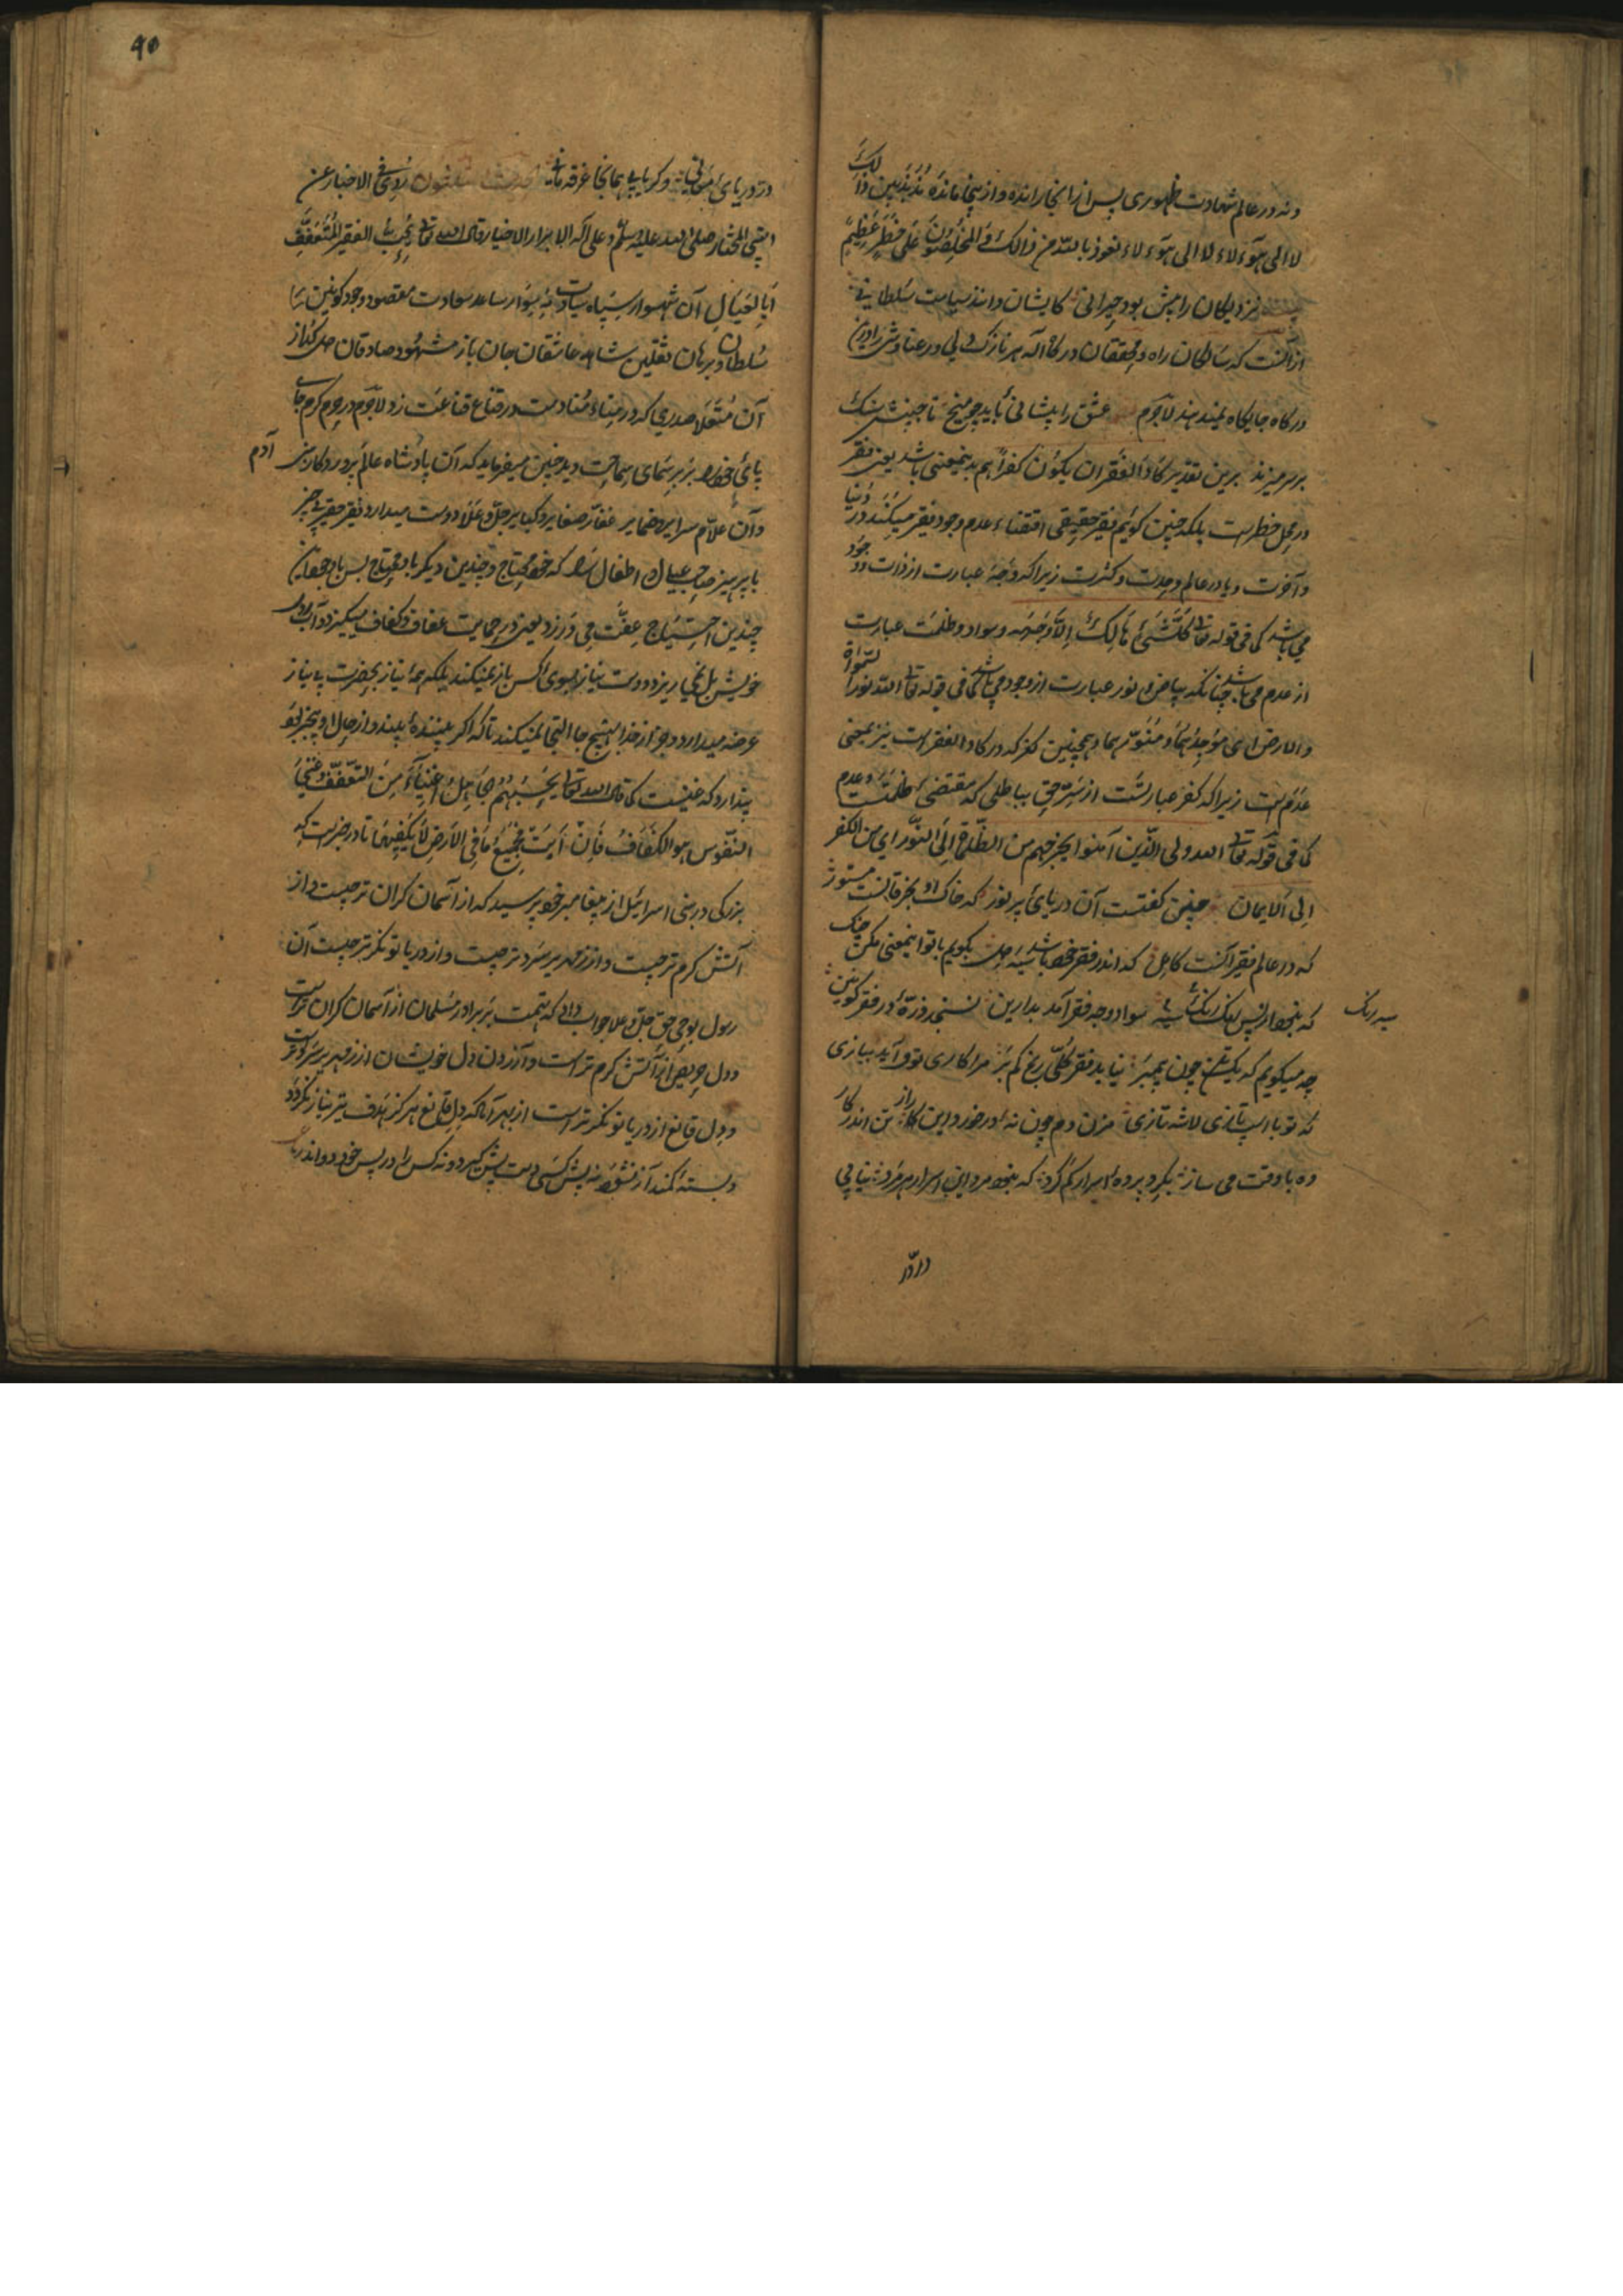 ونه در عالم شهادت ظهوری پس از آنجا رانده و از ینجا مانده مذبذبین ذالک
لا الی هؤلاء لا الی هؤلاء نعوذ بالله من ذالک و المخلصون علی خطر عظیم
نزدیکان را بیش بود حیرانی کایشان دانند سیاست سلطانی
از آنست که سالکان راه و محققان درگاه اله هر نازک دلی و رعنا وش را درین
درگاه جایگاه نمیدهند لاجرم عشق را پیشانی باید چو میخ تا جبینش سنگ
بر سر میزند برین تقدیر کاد الفقر ان یکون کفرا هم بدینمعنی باشد یعنی فقر
در محل خطرست بلکه چنین گوئیم فقر حقیقی اقتضاء عدم وجود فقر میکند در دنیا
و آخرت و یا در عالم وحدت و کثرت زیرا که وجه عبارت از ذات و وجود
می باشد کما فی قوله تعالی کل شیء هالک الا وجهه و سواد و ظلمت عبارت
از عدم می باشد چنانکه بیاض و نور عبارت از وجود می باشد کما فی قوله تعالی الله نور السموات
و الارض ای موجدهما و منورهما و همچنین کفر که در کاد الفقرست نیز بمعنی
عدم است زیرا که کفر عبارتست از ستر حق بباطلی که مقتضی ظلمتست و عدم
کما فی قوله تعالی الله ولی الذین آمنوا یخرجهم من الظلمات الی النور ای من الکفر
الی الایمان چنین گفتست آن دریای پر نور که خاک او بخرقانست مستور
که در عالم فقیر آنست کامل که اندر فقر خود باشد سیه دل بگویم با تو اینمعنی مکن جنگ
که نبود از پس رنگ سیه رنگ سواد وجه فقر آمد بدارین نسنجد ذره در فقر کونین
سیه رنگ
چه میگویم که یکتن چون پیمبر نیابد فقر کلی رنج کم بر مرا کاری تو و آید ببازی
که تو با اسپ تازی لاشه تازی مزن دم چون نه در خورد این راز تن اندر کار
ده با وقت می ساز بگرد پرده اسرار کم گرد که نبود مرد این اسرار هر مرد نیابی
در آن
۹۰
در دریای کبریایی همانجا غرقه مانی روی فی الاخبار عن
النبی المختار صلی الله علیه وسلم و علی آله الابرار الاخیار قال الله تعالی یحب الفقیر المتعفف
ابا العیال آن شهسوار سپاه سیادت ساعد سعادت مقصود وجود کونین
سلطان و برهان ثقلین شاهد عاشقان جان باز مشهود صادقان
آن صدری که قناع قناعت زد لاجرم در حرم کرم جای
پای خود را بر سمای سماحت دید چنین میفرماید که آن پادشاه عالم پرورد کارش
آدم
و آن علام سرایر و ضمایر غفار صغایر و کبایر جل و علا دوست میدارد فقیر حقیر
با پرهیز صاحب عیال و اطفال را که خود محتاج و چندین دیگر باو محتاج پس با وجود این
چندین احتیاج عفت می ورزد یعنی در حمایت عفاف و کفاف میگیرد و آب روی
خویش نمی ریزد و دست نیاز بسوی کس باز نمیکند بلکه همه نیاز بحضرت بی نیاز
عرضه میدارد و جز از خدا بهیچ جا التجا نمیکند تا که اگر بیننده بیند و از حال او بیخبر بود
پندارد که غنیست کما قال الله تعالی یحسبهم الجاهل اغنیاء من التعفف و غنی
النفوس هو الکفاف فان ابیت فجمیع ما فی الارض لا یکفیها تا در خبرست که
بزرکی در بنی اسرائیل از پیغامبر خود پرسید که از آسمان کران تر چیست و از
آتش کرم تر چیست و از زمهریر سرد تر چیست و از دریا تونکر تر چیست آن
رسول بوحی حق جل و علا جواب داد که تهمت بر برادر مسلمان از آسمان کران تر است
و دل حریص از آتش کرم تر است و آزردن دل خویشان از زمهریر سرد تر است
و دل قانع از دریا تونکر تر است از بهر آنکه دل قانع هرکز هدف تیر نیاز نکردد
و بسته کمند آز نشود نه پیش کسی دست پیش گیرد و نه کس را در پس خود دواند